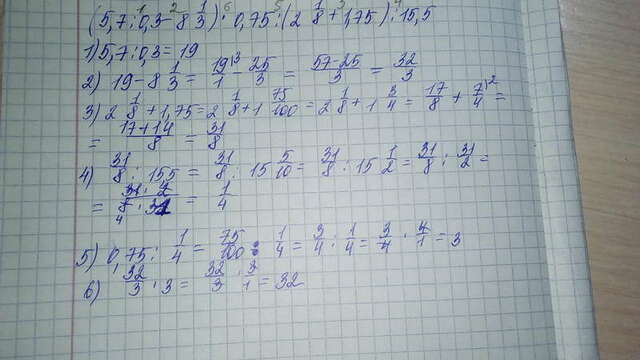 (5,7:0,3-8 1/3)·0,75:(2 1/8+1,75):15,5
1) 5,7:0,3=19
2) 19-8 1/3 = 19/1 - 25/3 = 57-25/3 = 32/3
3) 2 1/8+1,75=2 1/8+1 75/100=2 1/8+1 3/4=17/8+7/4=
= 17+14/8 = 31/8
4) 31/8:15,5=31/8:15 5/10=31/8:15 1/2=31/8:31/2=
= 31·2/8·31 = 1/4
5) 0,75:1/4=75/100:1/4=3/4:1/4=3/4·4/1=3
6) 32/3·3=32/3·3/1=32